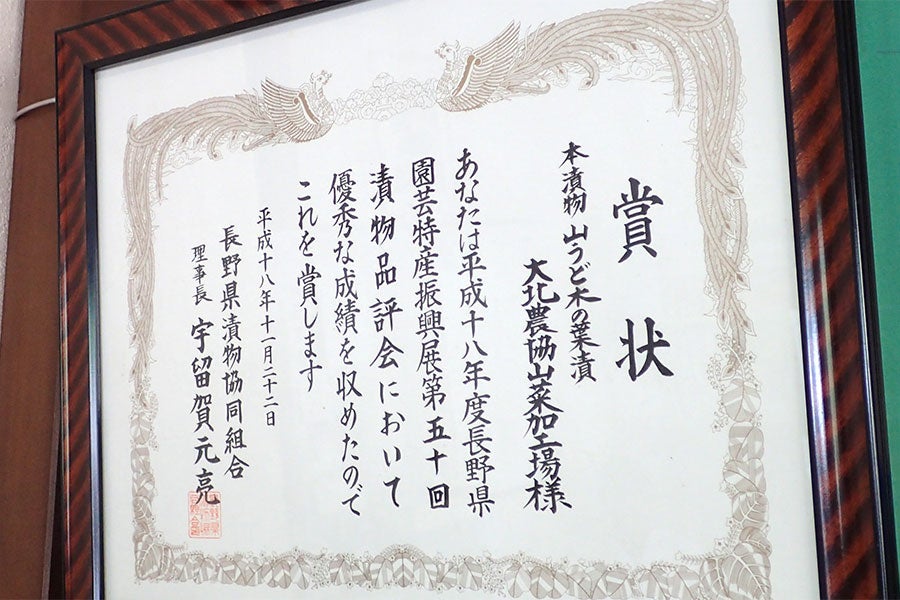 賞状
本漬物 山うど木の葉漬
大北農協山菜加工場様
あなたは平成十八年度長野県
園芸特産振興展第五十回
漬物品評会において
優秀な成績を収めたので
これを賞します
平成十八年十一月二十二日
長野県漬物協同組合
理事長 宇留賀元亮